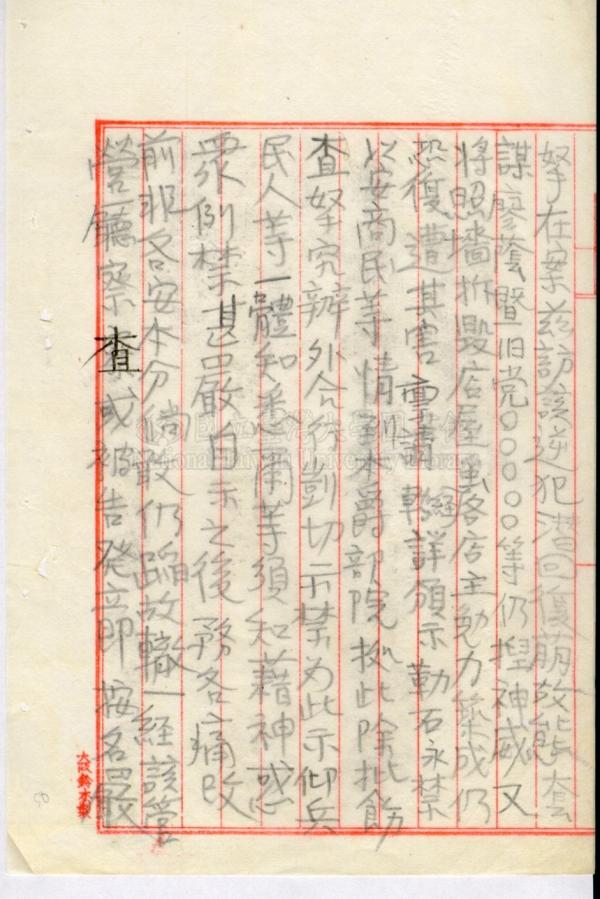 拏在案茲訪該逆犯潛回復萌故態套
謀廖蔭暨旧党〇〇〇〇〇等仍捏神威又
將照墻拆毀店屋虽経各店主勉力築成仍
恐復遭其害重請轉詳頒示勒石永禁
以安商民等情到本爵部院拠此除批飭
查拏究辦外合行剴切示禁为此示仰兵
民人等一體知悉爾等須知藉神惑
眾例禁甚嚴自示之後務各痛改
前非各安本分倘敢仍蹈故轍一経該管
營廳察查或被告発立即按名嚴
大阪鈴木製
50
國立臺灣大學圖書館
National Taiwan University Library